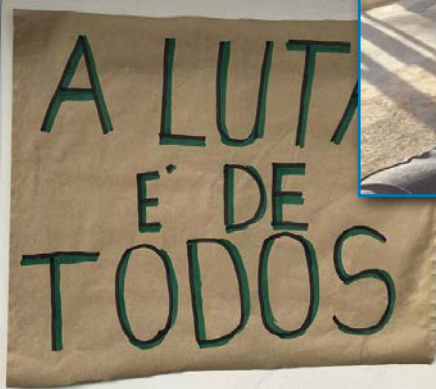 A LUTA
É DE
TODOS